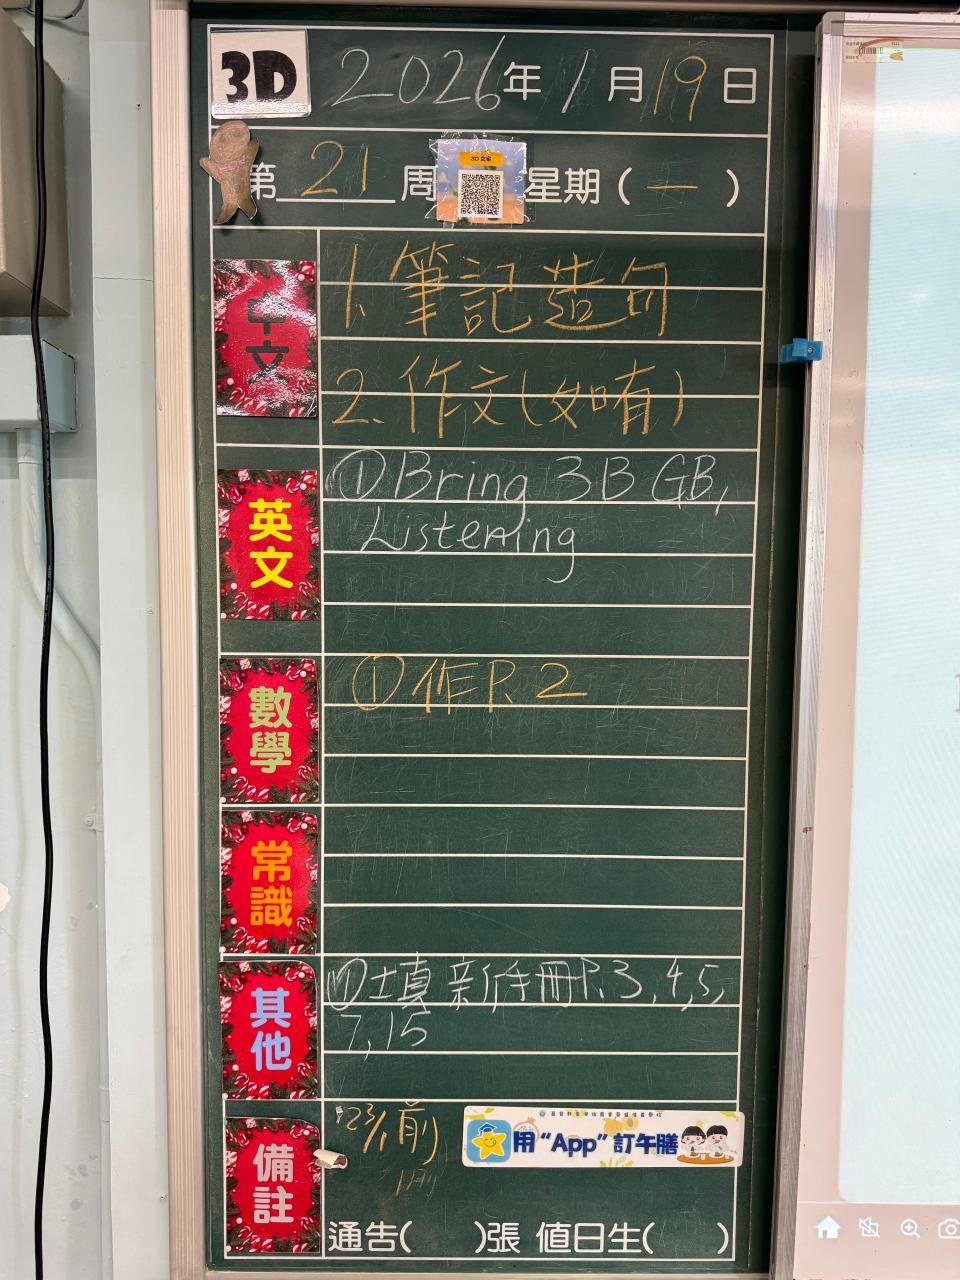 3D 2026年1月19日
第21周 3D 之家 星期(一)
中文
1. 筆記造句
2. 作文(如有)
英文
① Bring 3B GB,
Listening
數學
① 作P.2
常識
其他
① 填新手冊P.3,4,5,
7,15
備註
23/1前
用“App”訂午膳
通告( )張 值日生( )